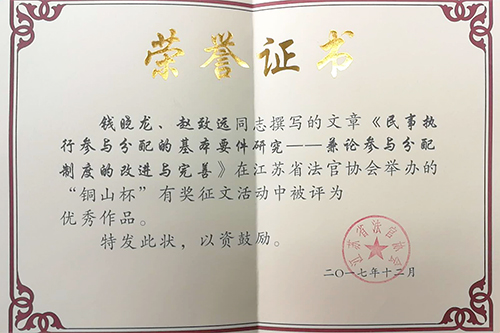 荣誉证书
钱晓龙、赵致远同志撰写的文章《民事执
行参与分配的基本要件研究——兼论参与分配
制度的改进与完善》在江苏省法官协会举办的
“铜山杯”有奖征文活动中被评为
优秀作品。
特发此状，以资鼓励。
江苏省法官协会
二〇一七年十二月